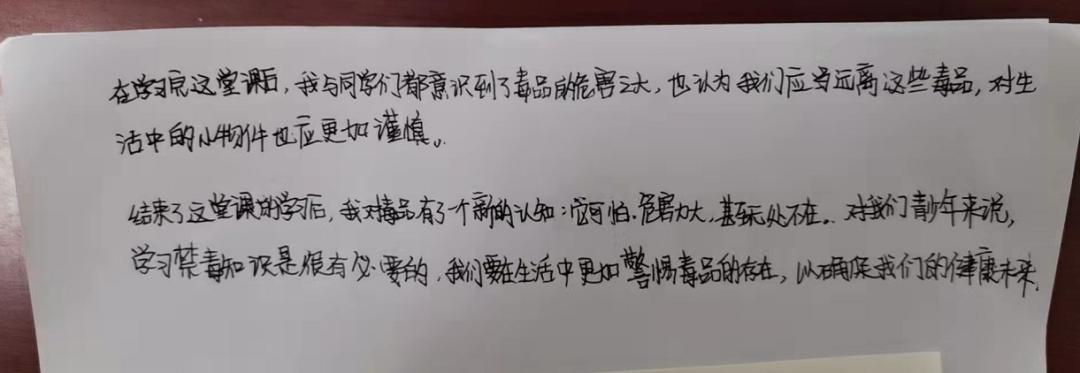 在学习完这堂课后，我与同学们都意识到了毒品的危害之大，也认为我们应当远离这些毒品，对生
活中的小物件也应更加谨慎。
结束了这堂课的学习后，我对毒品有了一个新的认知：它可怕、危害力大，甚至无处不在。对我们青少年来说，
学习禁毒知识是很有必要的，我们要在生活中更加警惕毒品的存在，以确保我们的健康未来.